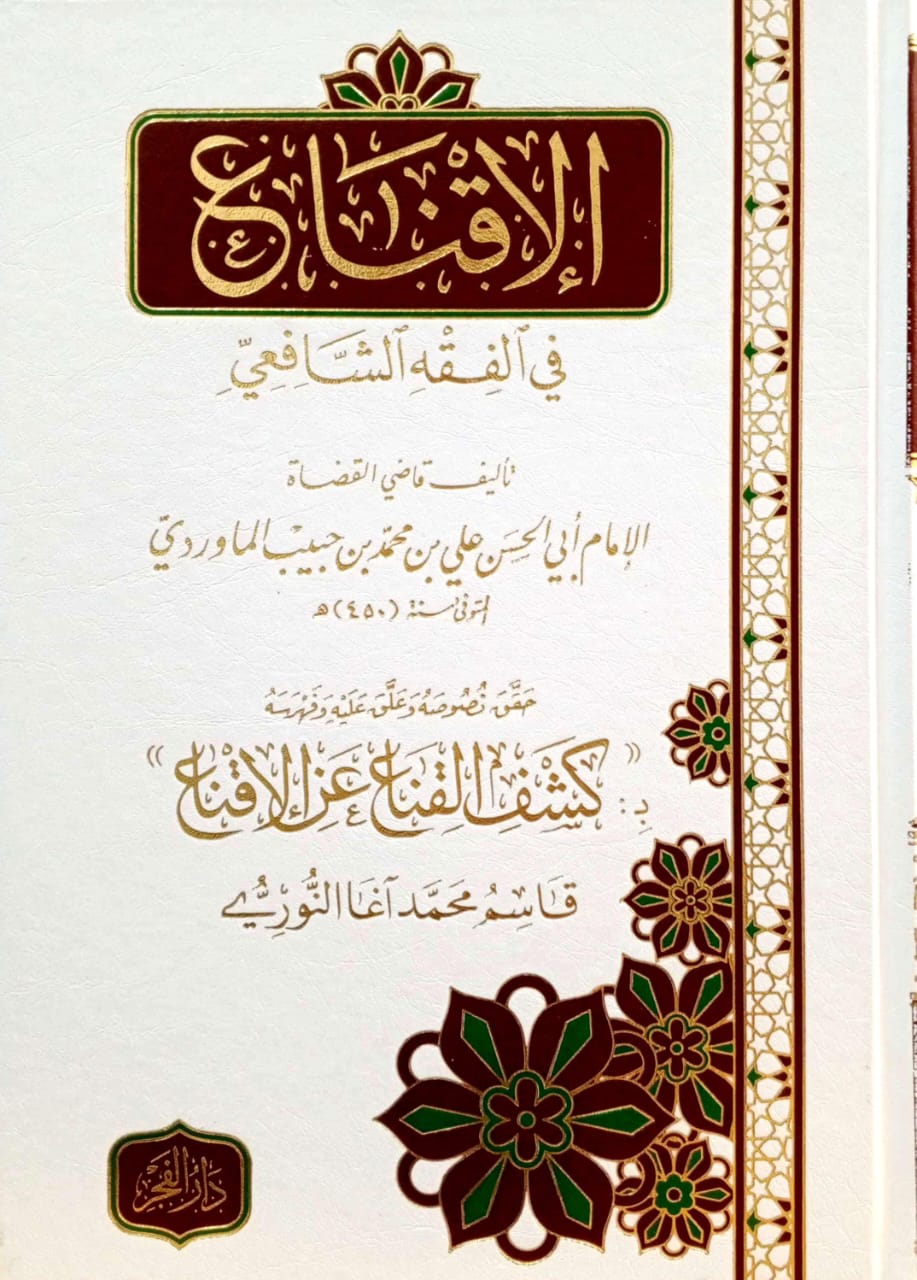 الإقناع
في ٱلفِقْهِ ٱلشَّافِعِيِّ
تأليف قاضي القضاة
الإمام أبي الحسَن علي بن محمّد بن حبيبْ الماورديّ
المتوفى سنة (٤٥٠) هـ
حَقَّقَ نُصُوصَهُ وَعَلَّقَ عَلَيْهِ وَفَهْرَسَهُ
بِـ: « كَشْفِ القِنَاع عَنِ الإقناع »
قَاسِمُ مُحَمَّد آغَا النُّورِيُّ
دَارُ الفَجْرِ